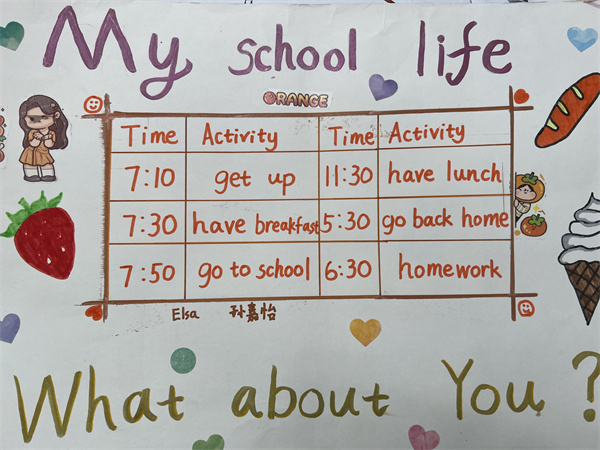 My school life
ORANGE
Time Activity Time Activity
7:10 get up 11:30 have lunch
7:30 have breakfast 5:30 go back home
7:50 go to school 6:30 homework
Elsa 孙嘉怡
What about You?